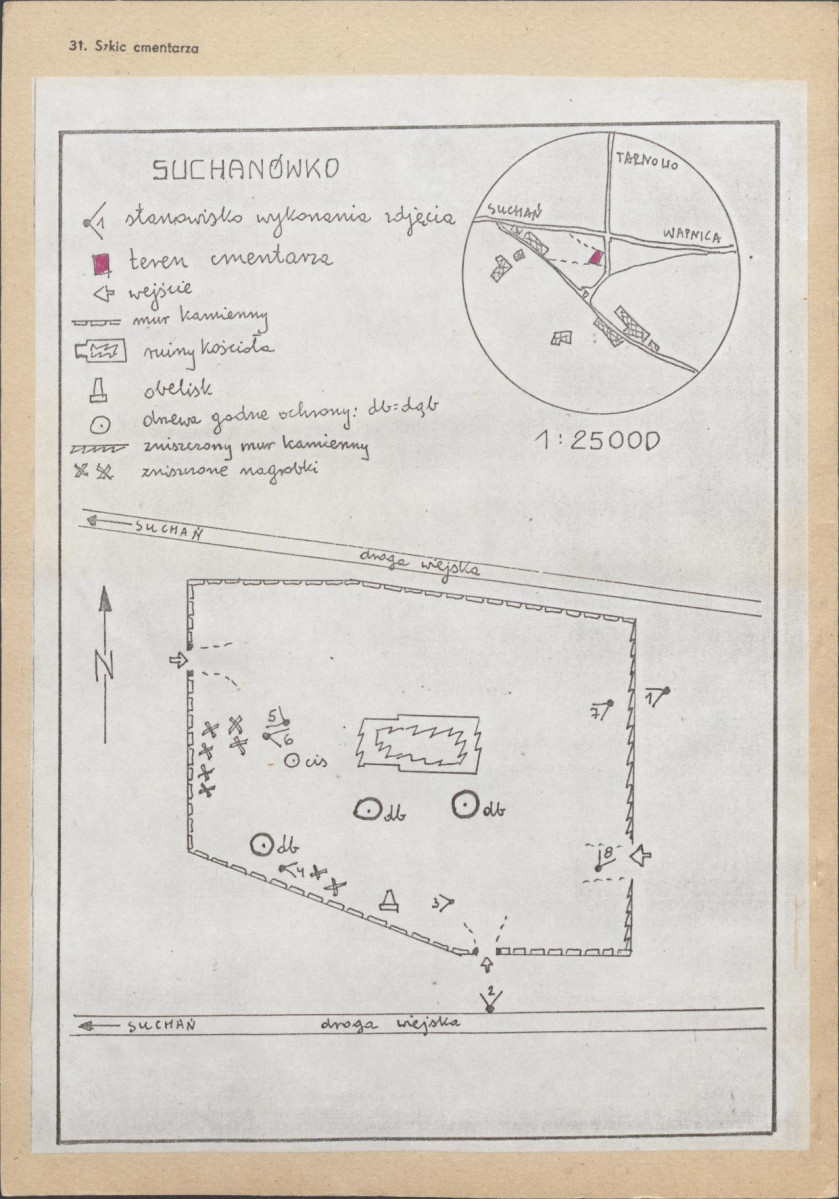 31. Szkic cmentarza
SUCHANÓWKO
1 stanowisko wykonania zdjęcia
teren cmentarza
wejście
mur kamienny
ruiny kościoła
obelisk
drzewa godne ochrony: db=dąb
zniszczony mur kamienny
zniszczone nagrobki
TARNOWO
SUCHAŃ
WAPNICA
1:25000
SUCHAŃ
droga wiejska
N
7
1
5
6
cis
db
db
db
8
4
3
2
SUCHAŃ droga wiejska